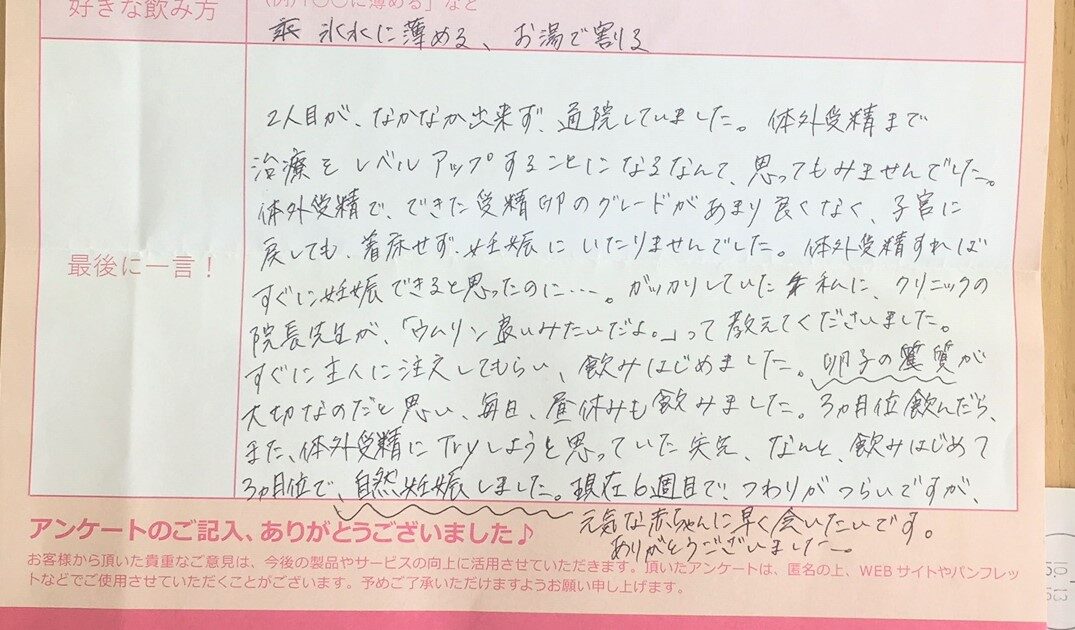 好きな飲み方
(例)「○○に薄める」など
氷水に薄める、お湯で割る
2人目が、なかなか出来ず、通院していました。体外受精まで
治療をレベルアップすることになるなんて、思ってもみませんでした。
体外受精で、できた受精卵のグレードがあまり良くなく、子宮に
戻しても、着床せず、妊娠にいたりませんでした。体外受精すれば
すぐに妊娠できると思ったのに…。ガッカリしていた私に、クリニックの
院長先生が、「ウムリン良いみたいだよ。」って教えてくださいました。
すぐに主人に注文してもらい、飲みはじめました。卵子の質が
大切なのだと思い、毎日、昼休みも飲みました。3ヵ月位飲んだら、
また、体外受精にTryしようと思っていた矢先、なんと、飲みはじめて
3ヵ月位で、自然妊娠しました。現在6週目で、つわりがつらいですが、
元気な赤ちゃんに早く会いたいです。
ありがとうございました。
最後に一言！
アンケートのご記入、ありがとうございました♪
お客様から頂いた貴重なご意見は、今後の製品やサービスの向上に活用させていただきます。頂いたアンケートは、匿名の上、WEBサイトやパンフレッ
トなどでご使用させていただくことがございます。予めご了承いただけますようお願い申し上げます。